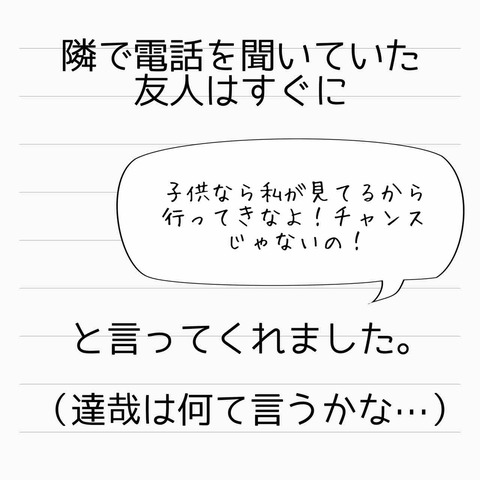 隣で電話を聞いていた
友人はすぐに
子供なら私が見てるから
行ってきなよ！チャンス
じゃないの！
と言ってくれました。
（達哉は何て言うかな…）